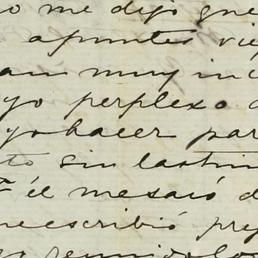 o me dijo que
apuntes vie
an muy in
yo perplexo
yo hacer par
to sin lastim
él me sacó d
me escribió pre